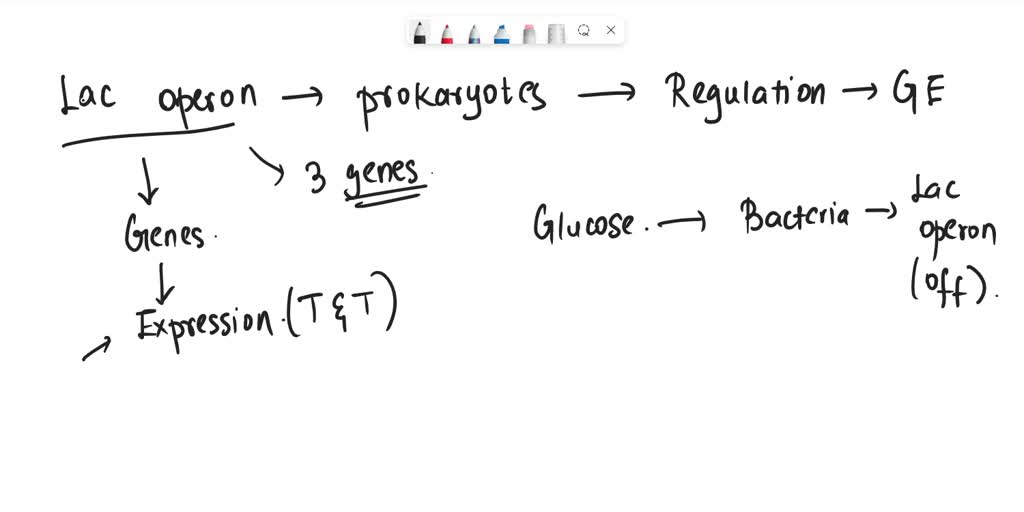 Lac operon → prokaryotes → Regulation → GE
↓ ↘ 3 genes.
Genes.
↓
→ Expression. (T & T)
Glucose. → Bacteria → Lac
operon
(off).